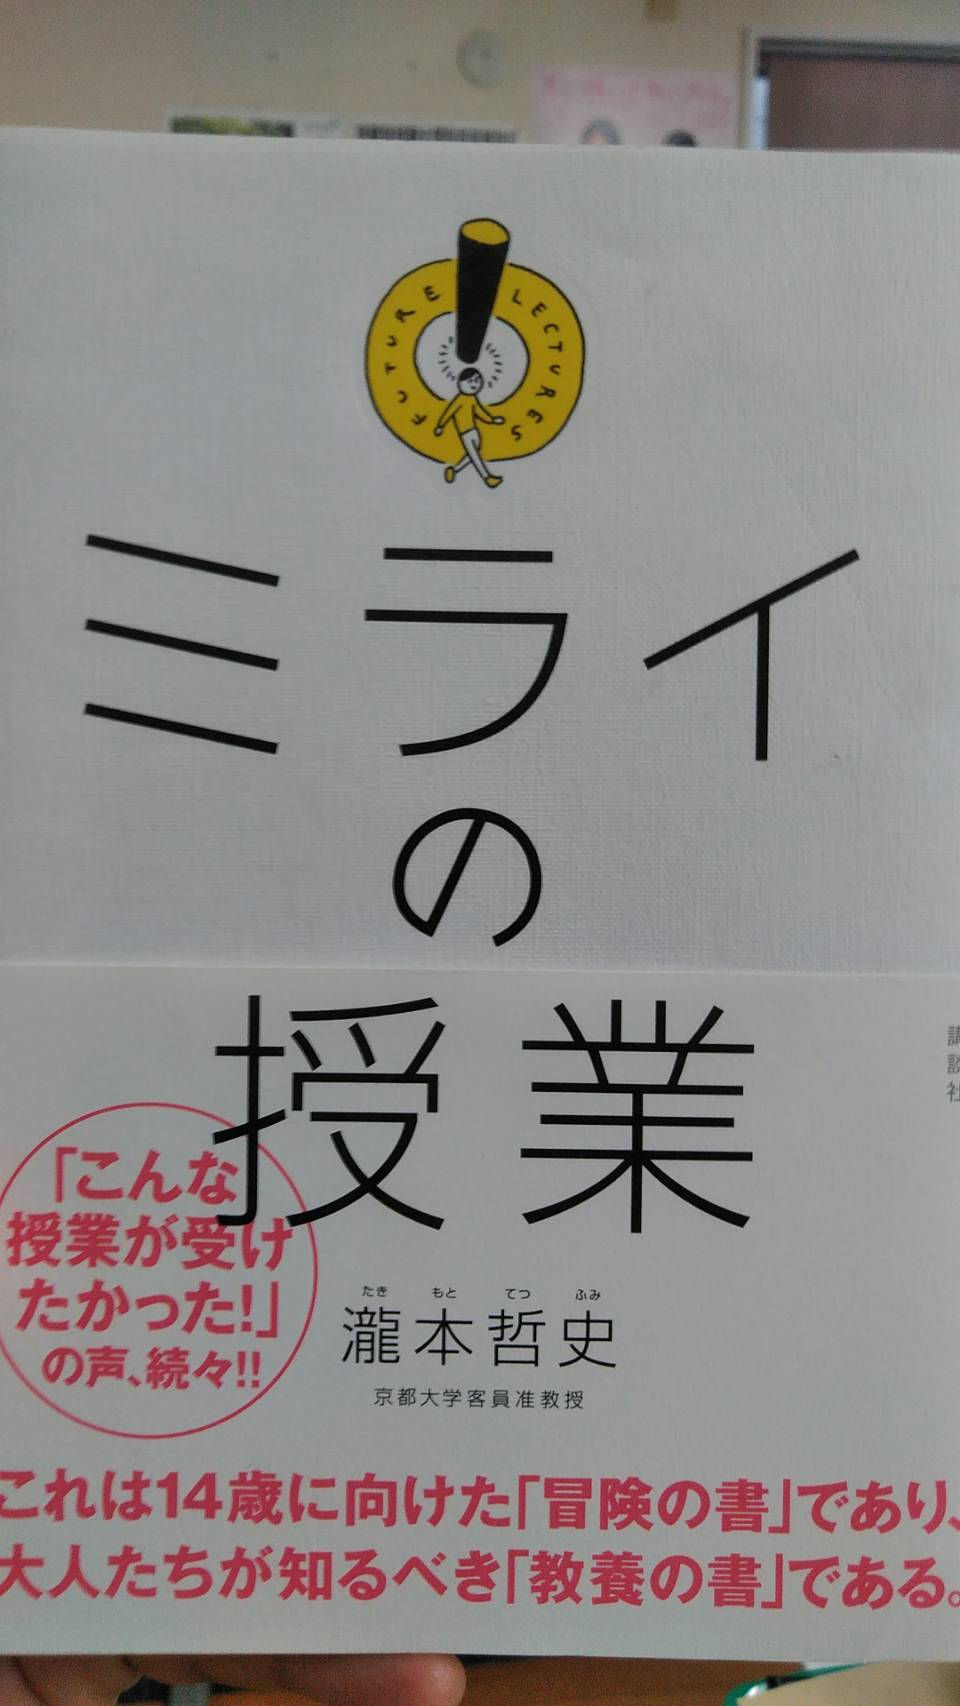 FUTURE LECTURES
ミライ
の
授業
講談社
「こんな
授業が受け
たかった!」
の声、続々!!
たき もと てつ ふみ
瀧本哲史
京都大学客員准教授
これは14歳に向けた「冒険の書」であり、
大人たちが知るべき「教養の書」である。